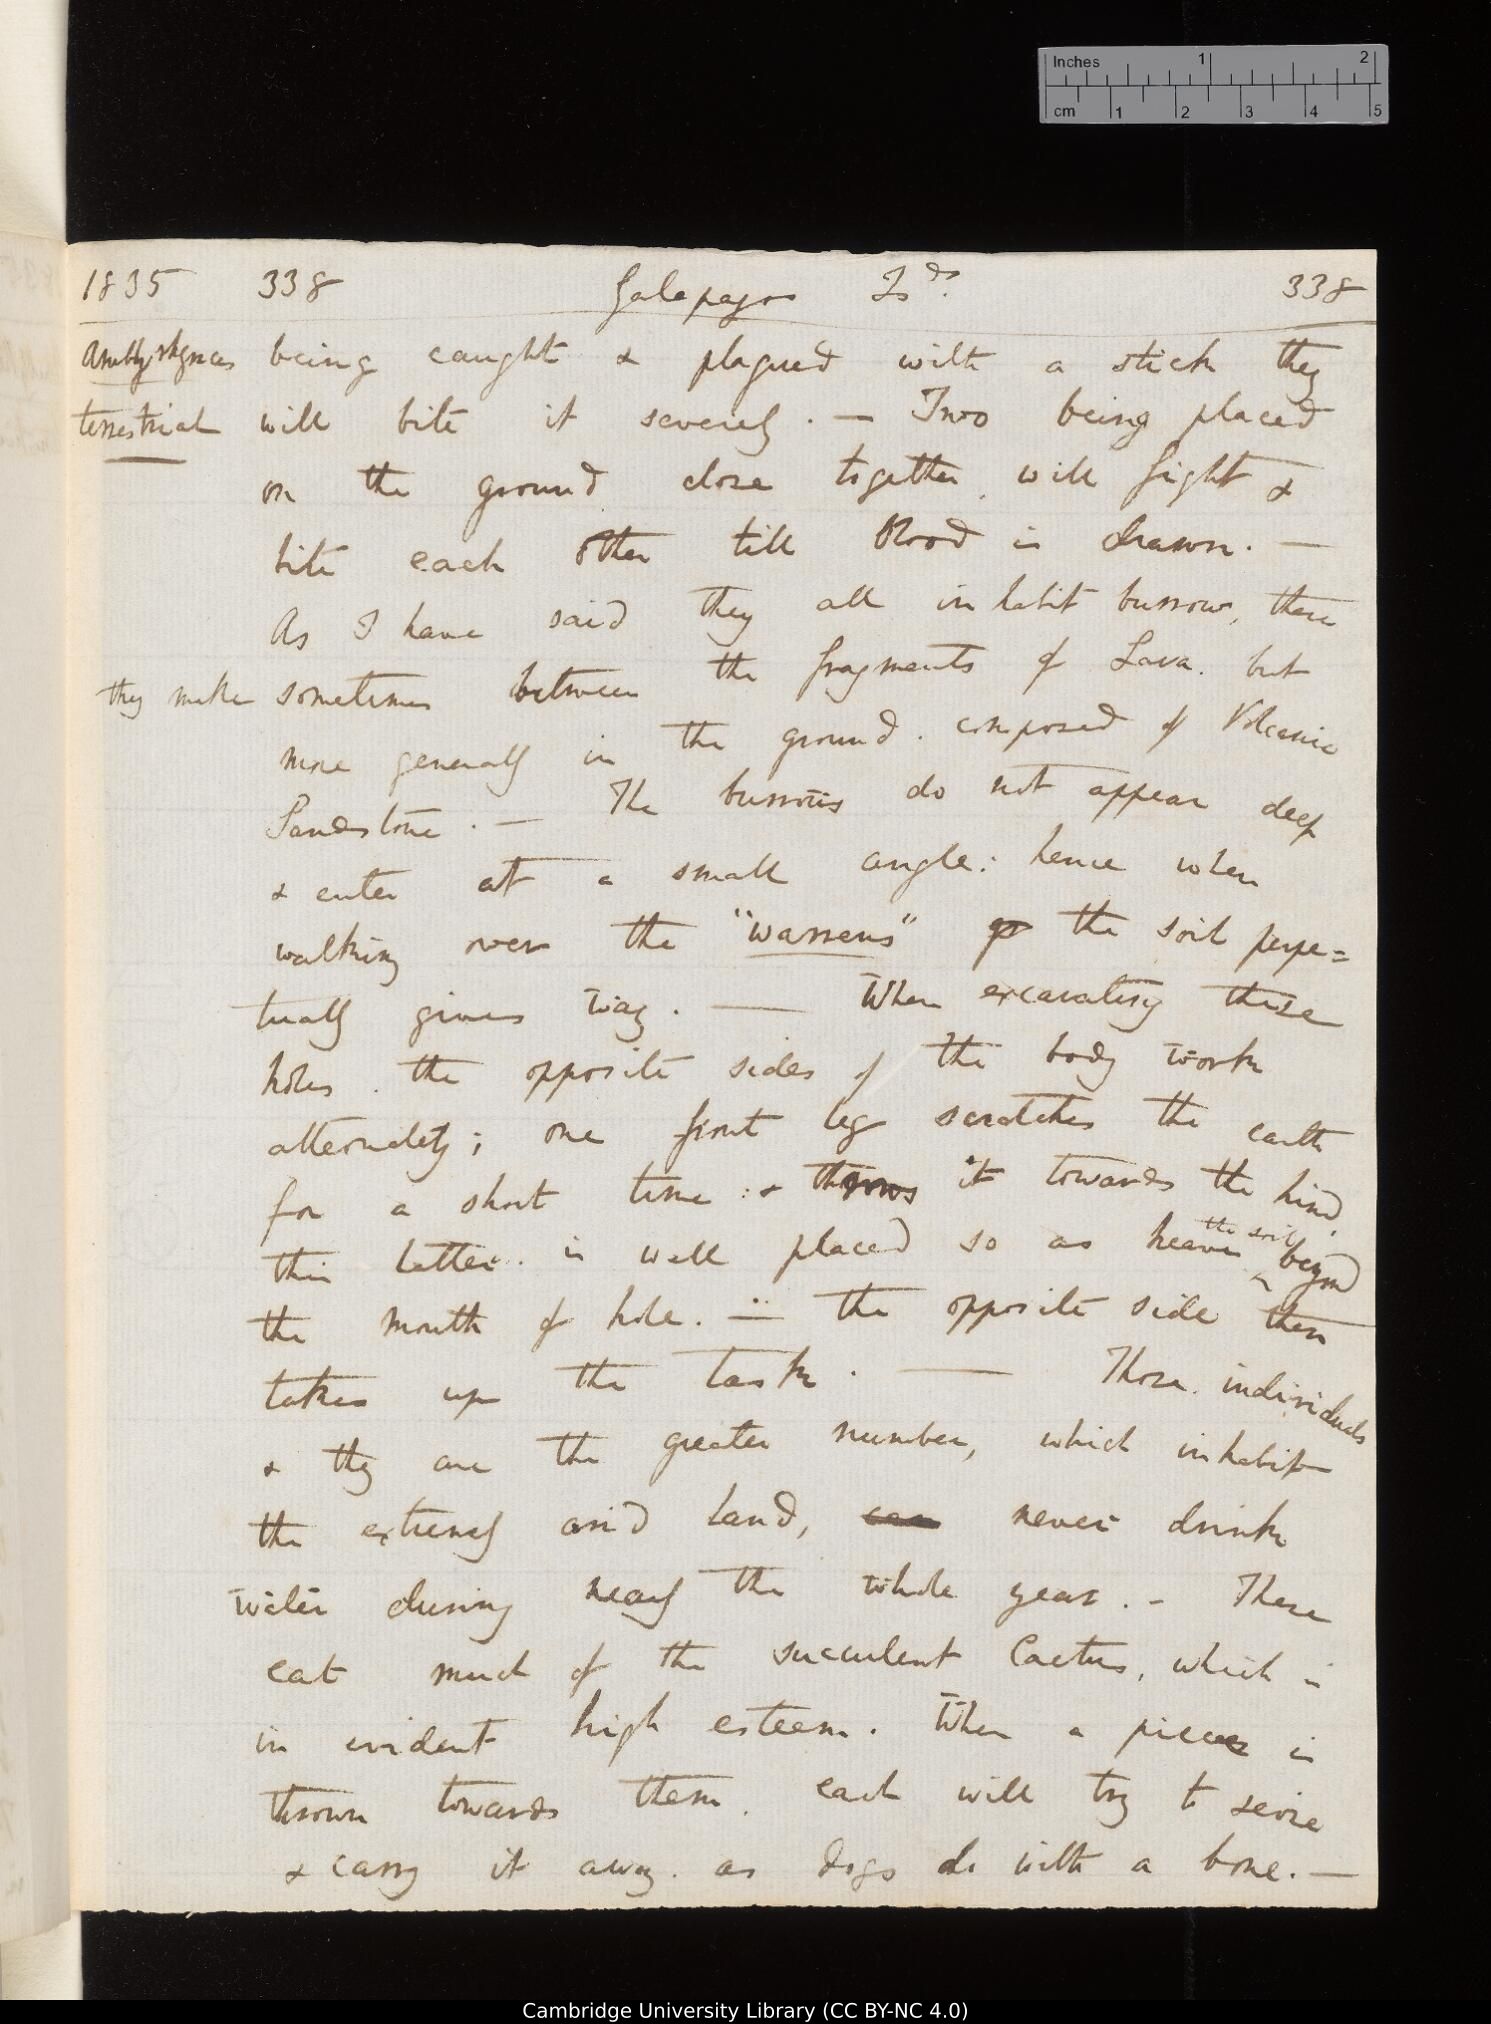 Inches 1 2
cm 1 2 3 4 5
1835 338 Galapagos Is ds. 338
Amblyrhyncus being caught & plagued with a stick they
terrestrial will bite it severely. — Two being placed
on the ground close together, will fight &
bite each other till blood is drawn. —
As I have said they all inhabit burrows, these
they make sometimes between the fragments of Lava. but
more generally in the ground. composed of Volcanic
Sandstone. — The burrows do not appear deep
& enter at a small angle: hence when
walking over the "warrens" the soil perpe=
tually gives way. — When excavating these
holes. the opposite sides of the body work
alternately; one front leg scratches the earth
for a short time: & throws it towards the hind.
the soil
this latter. is well placed so as heave beyond
the mouth of hole. — the opposite side then
takes up the task. — Those individuals
& they are the greater number, which inhabit
the extremely arid land, never drink
water during nearly the whole year. - These
eat much of the succulent Cactus, which is
in evident high esteem. When a piece is
thrown towards them. each will try to seize
& carry it away. as dogs do with a bone. —
Cambridge University Library (CC BY-NC 4.0)